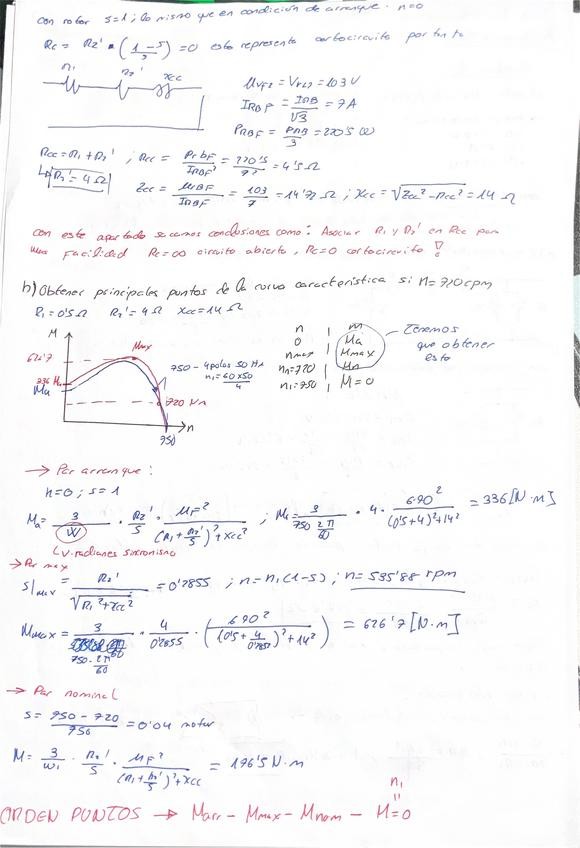 con rotor s=1; lo mismo que en condición de arranque. n=0
Rc = R2' * (1-s/s) = 0 esto representa cortocircuito por tanto
r1 r2' Xcc
UVF2 = VVL2 = 103 V
IRBF = IRB/√3 = 7A
PRBF = PRB/3 = 220'5 W
Rcc = R1 + R2' ; Rcc = PrbF/IRBF² = 220'5/7² = 4'5 Ω
↳ R2' = 4 Ω
Zcc = URBF/IRBF = 103/7 = 14'72 Ω ; Xcc = √Zcc² - Rcc² = 14 Ω
Con este apartado sacamos conclusiones como: Asociar R1 y R2' en Rcc para
una facilidad Rc=∞ circuito abierto, Rc=0 cortocircuito !
b) Obtener principales puntos de la curva característica si n=720 rpm
R1 = 0'5 Ω R2' = 4 Ω Xcc = 14 Ω
M
Mmax
626'7
336
Ma
750 - 4 polos 50 Hz
n1 = 60×50/4
720
750
n
n | m
0 | Ma
nmax | Mmax
nn=720 | Mn
n1=750 | M=0
Tenemos
que obtener
esto
→ Par arranque:
n=0; s=1
Ma = 3/W · R2'/S · UF²/(R1 + R2'/S)² + Xcc² ; M = 3/750 2π/60 · 4 · 690²/(0'5+4)² + 14² = 336 [N·m]
radianes sincronismo
→ Par max
s|max = R2'/√R1² + Xcc² = 0'2855 ; n = n1 (1-s) ; n = 535'88 rpm
Mmax = 3/750·2π/60 · 4/0'2855 · (690²/(0'5 + 4/0'2855)² + 14²) = 626'7 [N·m]
→ Par nominal
s = 750 - 720/750 = 0'04 motor
M = 3/W1 · R2'/S · UF²/(R1 + R2'/S)² + Xcc = 196'5 N·m
n1
=
ORDEN PUNTOS → Marr - Mmax - Mnom - M=0